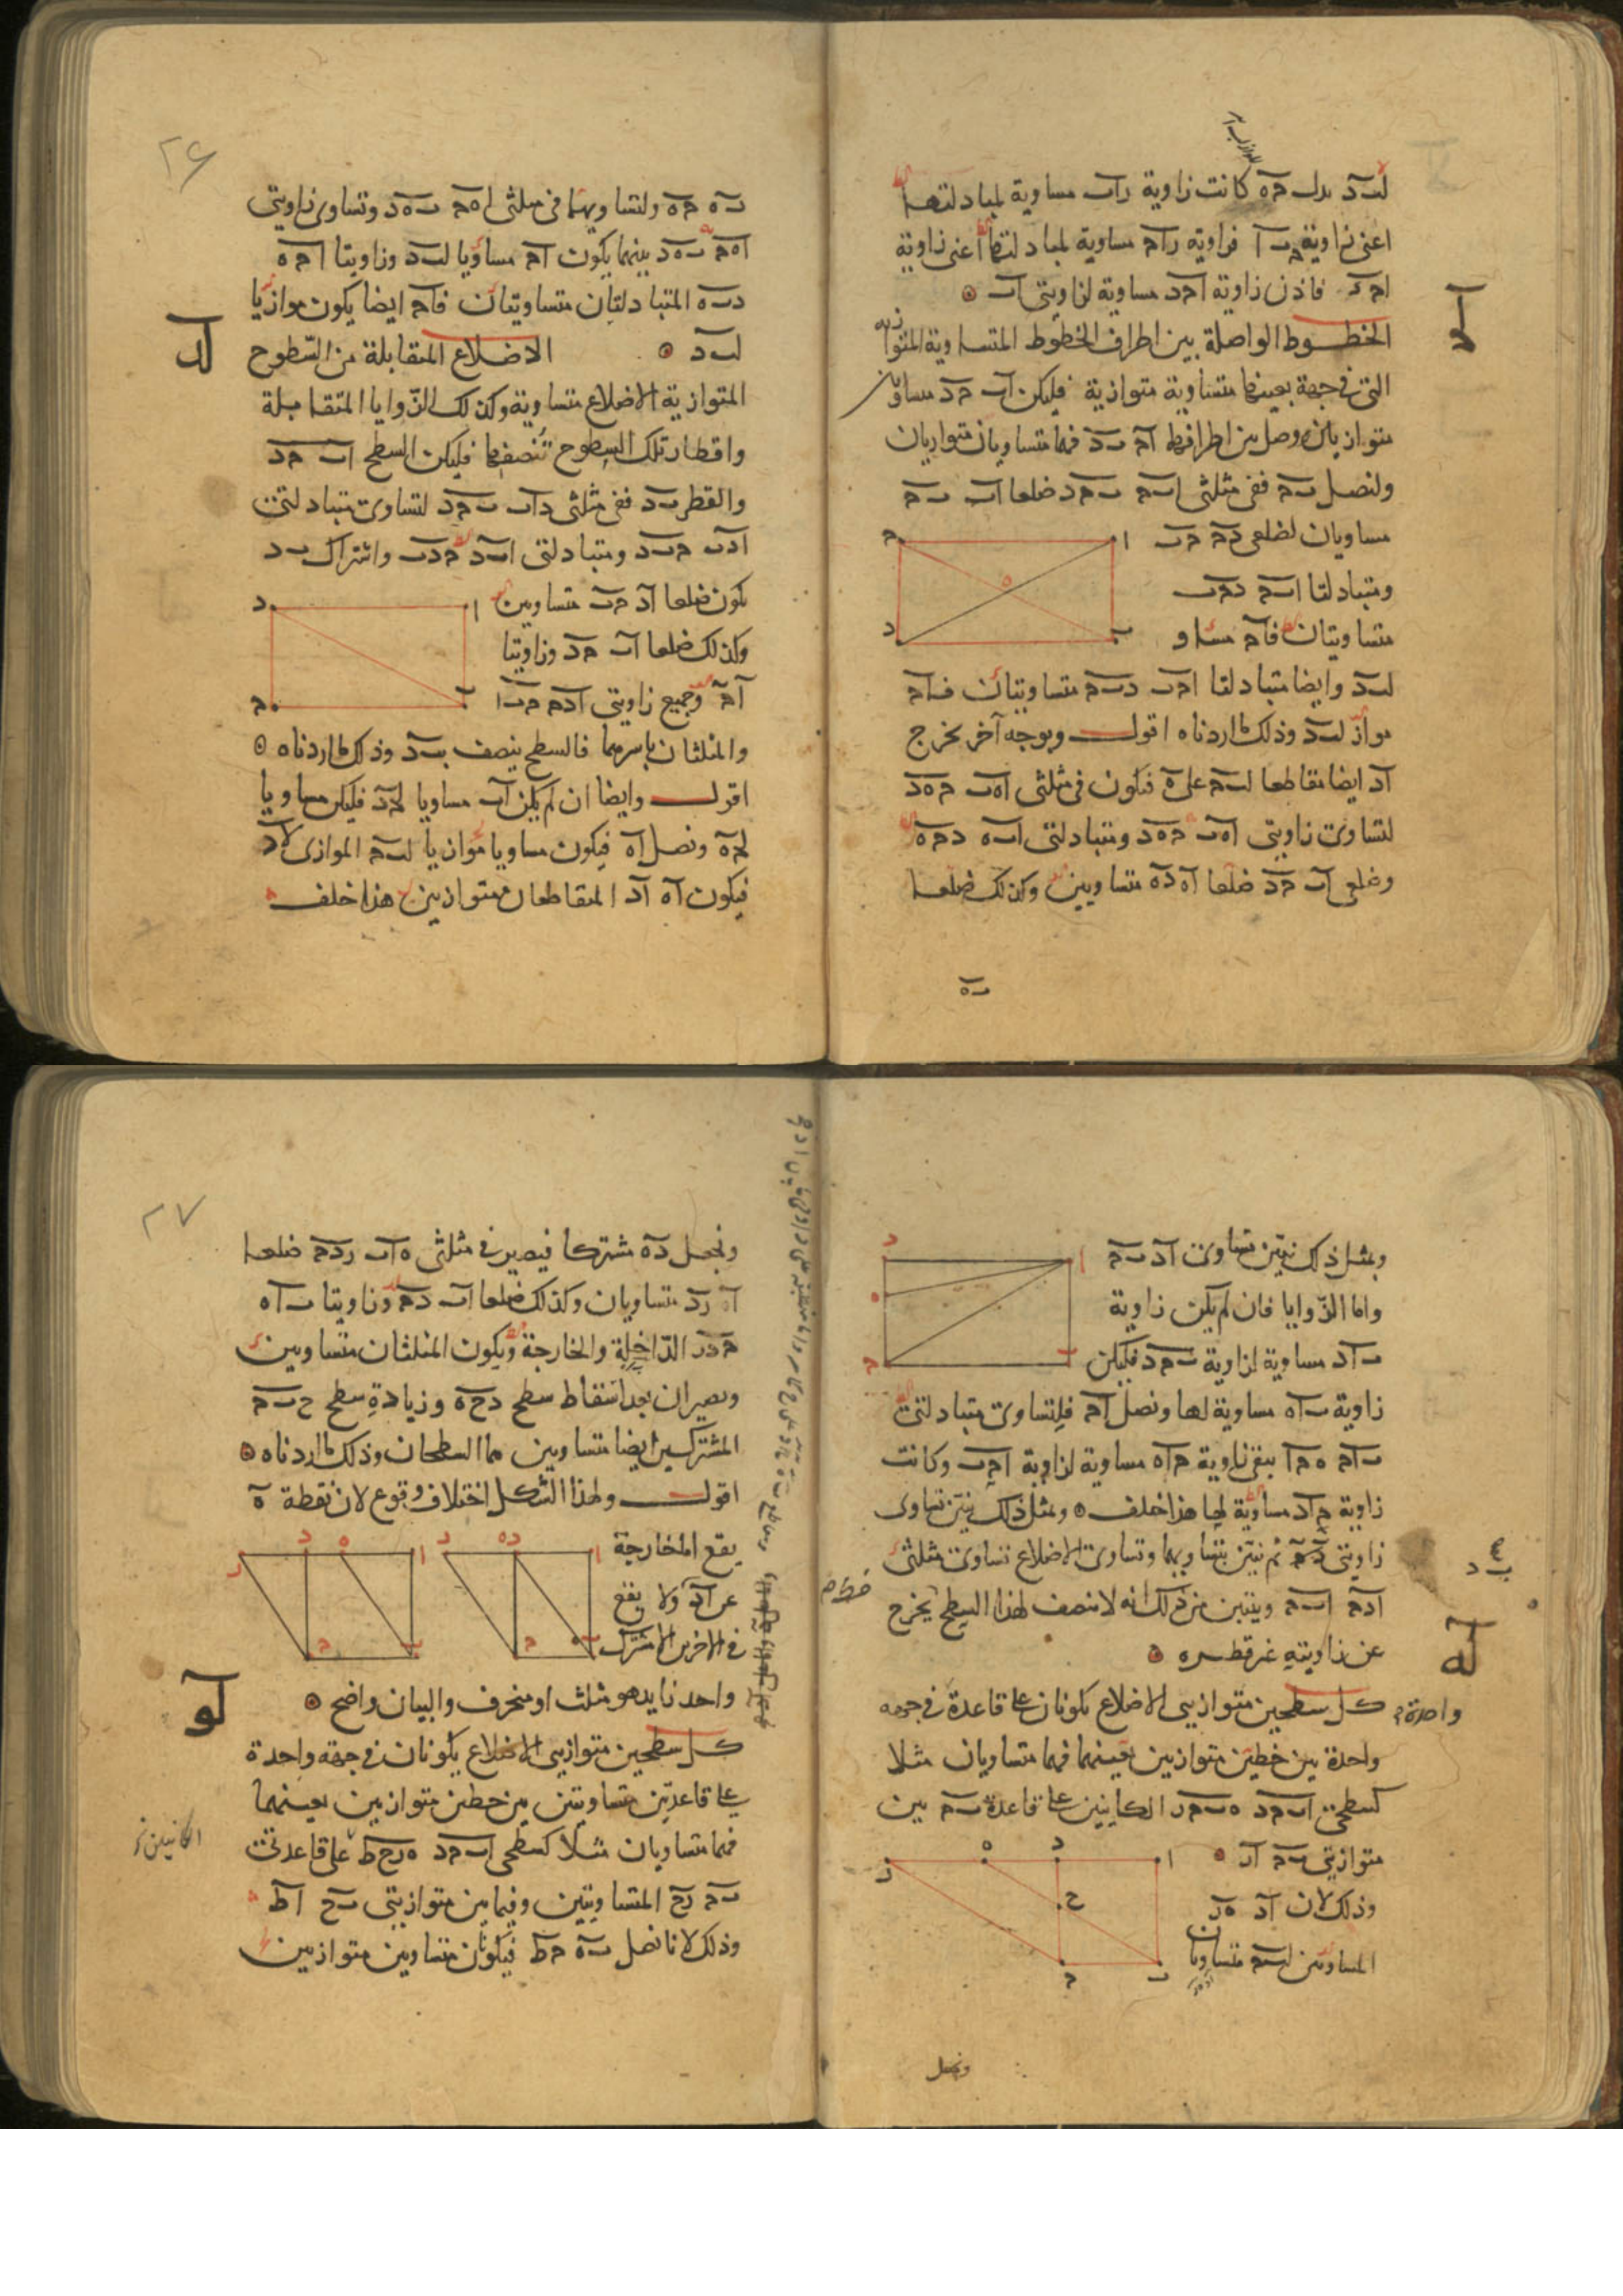 لب د بدل ج ه كانت زاوية ر ا ب مساوية لمبادلتها
اعنى زاوية ج ب ا فزاوية ر ا ج مساوية لمبادلتها اعنى زاوية
ا ج د فاذن زاوية ا ج د مساوية لزاويتى ا ب
لج
الخطوط الواصلة بين اطراف الخطوط المتساوية المتوازية
التى فى جهة بعينها متساوية متوازية فليكن ا ب ج د متساويان
متوازيان ووصل بين اطرافهما ا ج ب د فهما متساويان متوازيان
ولنصل ب ج ففى مثلثى ا ب ج ب ج د ضلعا ا ب ب ج
مساويان لضلعى د ج ج ب
ومتبادلتا ا ب ج د ج ب
متساويتان فا ج مساو
لب د وايضا متبادلتا ا ج ب د ب ج متساويتان فا ج
مواز لب د وذلك ما اردناه اقول وبوجه آخر نخرج
ا د ايضا مقاطعا لب ج على ه فيكون فى مثلثى ا ه ب ج ه د
لتساوى زاويتى ا ه ب ج ه د ومتبادلتى ا ب ه د ج ه
وضلعى ا ب ج د ضلعا ا ه د ه متساويين وكذلك ضلعا
ب ه
٢٦
ب ه ج ه ولتساويهما فى مثلثى ا ه ج ب ه د وتساوى زاويتى
ا ه ج ب ه د بينهما يكون ا ج مساويا لب د وزاويتا ا ج ه
د ب ه المتبادلتان متساويتان فا ج ايضا يكون موازيا
لب د الاضلاع المتقابلة من السطوح
لد
المتوازية الاضلاع متساوية وكذلك الزوايا المتقابلة
واقطار تلك السطوح تنصفها فليكن السطح ا ب ج د
والقطر ب د ففى مثلثى د ا ب ب ج د لتساوى متبادلتى
ا د ب ج ب د ومتبادلتى ا ب د ج د ب واشتراك ب د
يكون ضلعا ا د ج ب متساويين
وكذلك ضلعا ا ب ج د وزاويتا
ا ج وجميع زاويتى ا د ج ج ب ا
والمثلثان باسرهما فالسطح ينصف بب د وذلك ما اردناه
اقول وايضا ان لم يكن ا ب مساويا لج د فليكن مساويا
لج ه ونصل ا ه فيكون مساويا موازيا لب ج الموازى لا د
فيكون ا ه ا د المتقاطعان متوازيين هذا خلف
وبمثل ذلك نبين تساوى ا د ب ج
واما الزوايا فان لم يكن زاوية
ب ا د مساوية لزاوية ب ج د فليكن
زاوية ب ا ه مساوية لها ونصل ا ج فلتساوى متبادلتى
ب ا ج ه ج ا يبقى زاوية ج ا ه مساوية لزاوية ا ج ب وكانت
زاوية ج ا د مساوية لها هذا خلف وبمثل ذلك نبين تساوى
زاويتى د ج ثم نبين بتساويهما وتساوى الاضلاع تساوى مثلثى
ا د ج ا ب ج ويتبين من ذلك انه لا منصف لهذا السطح يخرج
عن زاويته غير قطره
له
كل سطحين متوازيى الاضلاع يكونان على قاعدة فى جهة
واحدة بين خطين متوازيين بعينهما فهما متساويان مثلا
كسطحى ا ب ج د ه ب ج ر الكائنين على قاعدة ب ج بين
متوازيتى ب ج ا ر
وذلك لان ا د ه ر
المساويين لب ج متساويان
ونجعل
٢٧
ونجعل د ه مشتركا فيصير فى مثلثى ه ا ب ر د ج ضلعا
ا ه ر د متساويان وكذلك ضلعا ا ب د ج وزاويتا ب ا ه
ج د ر الداخلة والخارجة ويكون المثلثان متساويين
ويصيران بعد اسقاط سطح د ح ه وزيادة سطح ح ب ج
المشتركين ايضا متساويين هما السطحان وذلك ما اردناه
اقول ولهذا الشكل اختلاف وقوع لان نقطة ه
يقع اما خارجة
عن ا د او لا يقع
فى الاخرين الا مشترك
واحد زايد هو مثلث او منحرف والبيان واضح
لو
كل سطحين متوازيى الاضلاع يكونان فى جهة واحدة
على قاعدتين متساويتين بين خطين متوازيين بعينهما
فهما متساويان مثلا كسطحى ا ب ج د ه ر ح ط على قاعدتى
ب ج ر ح المتساويتين وفيما بين متوازيتى ب ح ا ط
وذلك لانا نصل ب ه ج ط فيكونان متساويين متوازيين